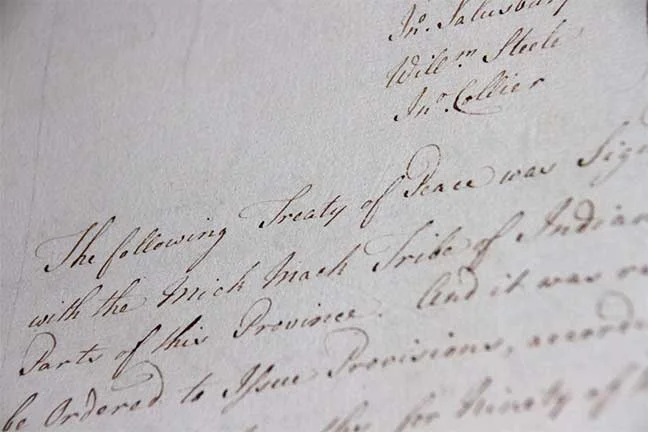 Jnº. Salusbury
Willm. Steele
Jnº. Collier
The following Treaty of Peace was
with the Mick Mack Tribe of
Parts of this Province. And it was
be Ordered to Issue Provisions,
for Ninety of